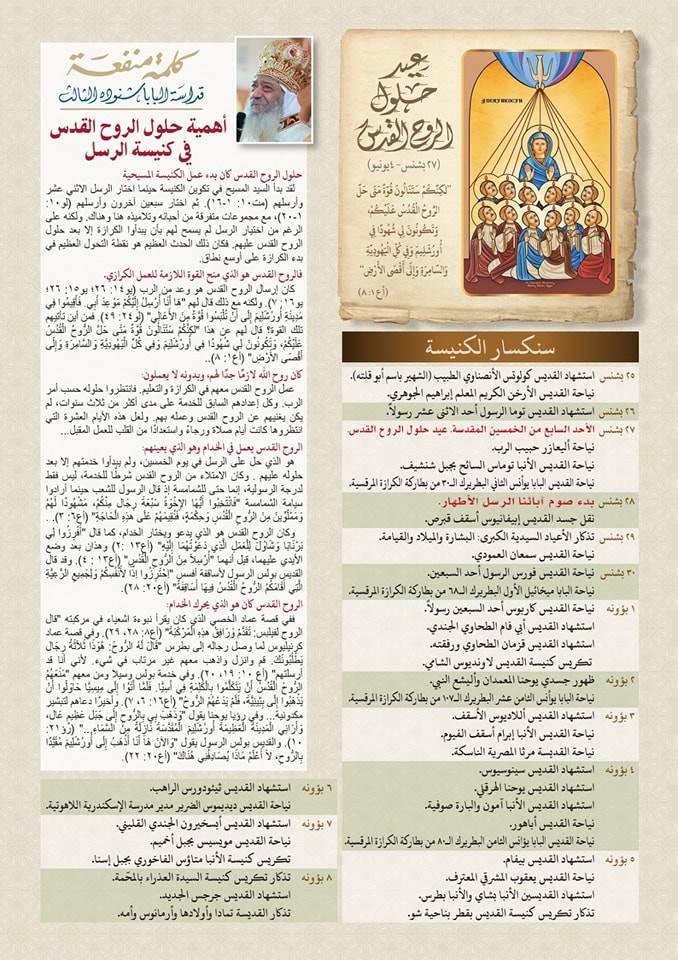 عيد
حلول
الروح القدس
(٢٧ بشنس - ٤ يونيو)
"لكِنَّكُمْ سَتَنَالُونَ قُوَّةً مَتَى حَلَّ
الرُّوحُ الْقُدُسُ عَلَيْكُمْ،
وَتَكُونُونَ لِي شُهُودًا فِي
أُورُشَلِيمَ وَفِي كُلِّ الْيَهُودِيَّةِ
وَالسَّامِرَةِ وَإِلَى أَقْصَى الأَرْضِ"
(أع١: ٨)
سنكسار الكنيسة
٢٥ بشنس استشهاد القديس كولوتس الأنصناوي الطبيب (الشهير باسم أبو قلته).
نياحة القديس الأرخن الكريم المعلم إبراهيم الجوهري.
٢٦ بشنس استشهاد القديس توما الرسول أحد الاثنى عشر رسولاً.
٢٧ بشنس الأحد السابع من الخمسين المقدسة. عيد حلول الروح القدس.
نياحة أليعازر حبيب الرب.
نياحة القديس الأنبا توماس السائح بجبل شنشيف.
نياحة القديس البابا يوأنس الثاني البطريرك الـ٣٠ من بطاركة الكرازة المرقسية.
٢٨ بشنس بدء صوم آبائنا الرسل الأطهار.
نقل جسد القديس إبيفانيوس أسقف قبرص.
٢٩ بشنس تذكار الأعياد السيدية الكبرى: البشارة والميلاد والقيامة.
نياحة القديس سمعان العمودي.
٣٠ بشنس نياحة القديس فورس الرسول أحد السبعين.
نياحة البابا ميخائيل الأول البطريرك الـ٦٨ من بطاركة الكرازة المرقسية.
١ بؤونه نياحة القديس كاربوس أحد السبعين رسولاً.
استشهاد القديس أبي فام الطحاوي الجندي.
استشهاد القديس قزمان الطحاوي ورفقته.
تكريس كنيسة القديس لاونديوس الشامي.
٢ بؤونه ظهور جسدي يوحنا المعمدان وأليشع النبي.
نياحة البابا يوأنس الثامن عشر البطريرك الـ١٠٧ من بطاركة الكرازة المرقسية.
٣ بؤونه استشهاد القديس أللاديوس الأسقف.
نياحة القديس الأنبا إبرآم أسقف الفيوم.
نياحة القديسة مرثا المصرية الناسكة.
٤ بؤونه استشهاد القديس سينوسيوس.
استشهاد القديس يوحنا الهرقلي.
استشهاد القديس الأنبا آمون والبارة صوفية.
نياحة القديس أباهور.
نياحة القديس البابا يؤانس الثامن البطريرك الـ٨٠ من بطاركة الكرازة المرقسية.
٥ بؤونه استشهاد القديس بيفام.
نياحة القديس يعقوب المشرقي المعترف.
استشهاد القديسين الأنبا بشاي والأنبا بطرس.
تذكار تكريس كنيسة القديس بقطر بناحية شو.
كلمة منفعة
قداسة البابا شنوده الثالث
أهمية حلول الروح القدس
في كنيسة الرسل
حلول الروح القدس كان بدء عمل الكنيسة المسيحية
لقد بدأ السيد المسيح في تكوين الكنيسة حينما اختار الرسل الاثني عشر
وأرسلهم (مت١٠: ١-١٦). ثم اختار سبعين آخرون وأرسلهم (لو١٠: ١
-٢٠)، مع مجموعات متفرقة من أحبائه وتلاميذه هنا وهناك. ولكنه على
الرغم من اختيار الرسل لم يسمح لهم بأن يبدأوا الكرازة إلا بعد حلول
الروح القدس عليهم. فكان ذلك الحدث العظيم هو نقطة التحول العظيم في
بدء الكرازة على أوسع نطاق.
فالروح القدس هو الذي منح القوة اللازمة للعمل الكرازي.
كان إرسال الروح القدس هو وعد من الرب (يو١٤: ٢٦؛ يو١٥: ٢٦؛
يو١٦: ٧). ولكنه مع ذلك قال لهم "هَا أَنَا أُرْسِلُ إِلَيْكُمْ مَوْعِدَ أَبِي. فَأَقِيمُوا فِي
مَدِينَةِ أُورُشَلِيمَ إِلَى أَنْ تُلْبَسُوا قُوَّةً مِنَ الأَعَالِي" (لو٢٤: ٤٩). فمن أين تأتيهم
تلك القوة؟ قال لهم عن هذا "لكِنَّكُمْ سَتَنَالُونَ قُوَّةً مَتَى حَلَّ الرُّوحُ الْقُدُسُ
عَلَيْكُمْ، وَتَكُونُونَ لِي شُهُودًا فِي أُورُشَلِيمَ وَفِي كُلِّ الْيَهُودِيَّةِ وَالسَّامِرَةِ وَإِلَى
أَقْصَى الأَرْضِ" (أع١: ٨)..
كان روح الله لازمًا جدًا لهم، وبدونه لا يعملون:
عمل الروح القدس معهم في الكرازة والتعليم. فانتظروا حلوله حسب أمر
الرب. وكل إعدادهم السابق للخدمة على مدى أكثر من ثلاث سنوات، لم
يكن يغنيهم عن الروح القدس وعمله بهم. ولعل هذه الأيام العشرة التي
انتظروها كانت أيام صلاة ورجاء واستعدادًا من القلب للعمل المقبل...
الروح القدس يعمل في الخدام وهو الذي يعينهم:
هو الذي حل على الرسل في يوم الخمسين، ولم يبدأوا خدمتهم إلا بعد
حلوله عليهم. وكان الامتلاء من الروح القدس شرطًا للخدمة، ليس فقط
لدرجة الرسولية، إنما حتى للشمامسة إذ قال الرسول للشعب حينما أرادوا
سيامة الشمامسة "فَانْتَخِبُوا أَيُّهَا الإِخْوَةُ سَبْعَةَ رِجَال مِنْكُمْ، مَشْهُودًا لَهُمْ
وَمَمْلُوِّينَ مِنَ الرُّوحِ الْقُدُسِ وَحِكْمَةٍ، فَنُقِيمَهُمْ عَلَى هذِهِ الْحَاجَةِ" (أع٦: ٣)..
وكان الروح القدس هو الذي يدعو ويختار الخدام، كما قال "أَفْرِزُوا لِي
بَرْنَابَا وَشَاوُلَ لِلْعَمَلِ الَّذِي دَعَوْتُهُمَا إِلَيْهِ" (أع١٣: ٢) وهذان بعد وضع
الأيدي عليهما، قيل أنهما "أُرْسِلاَ مِنَ الرُّوحِ الْقُدُسِ" (أع١٣: ٤). وقد قال
القديس بولس الرسول لأساقفة أفسس "اِحْتَرِزُوا إِذًا لأَنْفُسِكُمْ وَلِجَمِيعِ الرَّعِيَّةِ
الَّتِي أَقَامَكُمُ الرُّوحُ الْقُدُسُ فِيهَا أَسَاقِفَةً" (أع٢٠: ٢٨).
الروح القدس كان هو الذي يحرك الخدام:
ففي قصة عماد الخصي الذي كان يقرأ نبوءة إشعياء في مركبته "قال
الروح لفيلبس: تَقَدَّمْ وَرَافِقْ هذِهِ الْمَرْكَبَةَ" (أع٨: ٢٨، ٢٩). وفي قصة عماد
كرنيليوس لما وصل رجاله إلى بطرس "قَالَ لَهُ الرُّوحُ: هُوَذَا ثَلاَثَةُ رِجَال
يَطْلُبُونَكَ. قم وانزل واذهب معهم غير مرتاب في شيء. لأني أنا قد
أرسلتهم" (أع ١٠: ١٩، ٢٠). وفي خدمة بولس وسيلا ومن معهم "مَنَعَهُمُ
الرُّوحُ الْقُدُسُ أَنْ يَتَكَلَّمُوا بِالْكَلِمَةِ فِي أَسِيَّا. فَلَمَّا أَتَوْا إِلَى مِيسِيَّا حَاوَلُوا أَنْ
يَذْهَبُوا إِلَى بِثِينِيَّةَ، فَلَمْ يَدَعْهُمُ الرُّوحُ" (أع١٦: ٦، ٧). وأخيرًا دعاهم لتبشير
مكدونية... وفي رؤيا يوحنا يقول "وَذَهَبَ بِي بِالرُّوحِ إِلَى جَبَل عَظِيمٍ عَال،
وَأَرَانِي الْمَدِينَةَ الْعَظِيمَةَ أُورُشَلِيمَ الْمُقَدَّسَةَ نَازِلَةً مِنَ السَّمَاءِ..." (رؤ٢١:
١٠). والقديس بولس الرسول يقول "وَالآنَ هَا أَنَا أَذْهَبُ إِلَى أُورُشَلِيمَ مُقَيَّدًا
بِالرُّوحِ، لاَ أَعْلَمُ مَاذَا يُصَادِفُنِي هُنَاكَ" (أع٢٠: ٢٢).
٦ بؤونه استشهاد القديس ثيئودورس الراهب.
نياحة القديس ديديموس الضرير مدير مدرسة الإسكندرية اللاهوتية.
٧ بؤونه استشهاد القديس أبسخيرون الجندي القليني.
نياحة القديس مويسيس بجبل أخميم.
تكريس كنيسة الأنبا متاؤس الفاخوري بجبل إسنا.
٨ بؤونه تذكار تكريس كنيسة السيدة العذراء بالمحمّة.
استشهاد القديس جرجس الجديد.
تذكار القديسة تمادا وأولادها وأرمانوس وأمه.